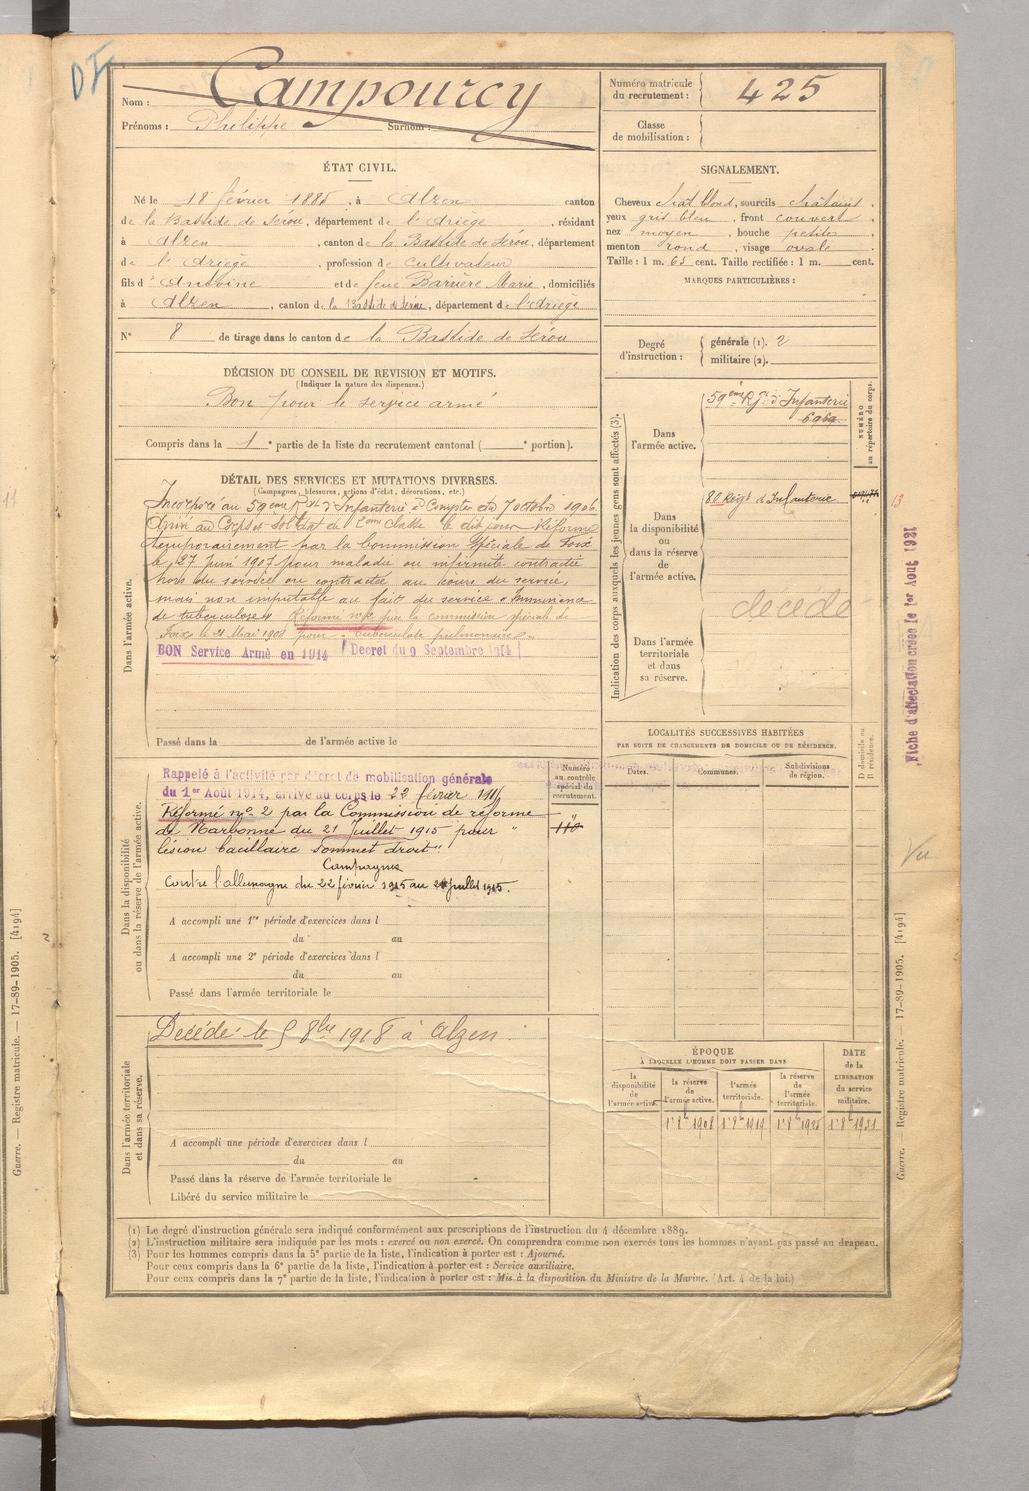 DF
Nom : Campourcy
Prénoms : Philippe Surnom :
Numéro matricule du recrutement : 425
Classe de mobilisation :
ÉTAT CIVIL.
Né le 18 février 1885, à Alzen canton
de la Bastide de Sérou, département de l'Ariège, résidant
à Alzen, canton de la Bastide de Sérou, département
de l'Ariège, profession de cultivateur
fils d'Antoine et de feue Barrière Marie, domiciliés
à Alzen, canton de la Bastide de Sérou, département de l'Ariège
N° 8 de tirage dans le canton de la Bastide de Sérou
SIGNALEMENT.
Cheveux chât blond, sourcils châtains,
yeux gris bleu, front couvert,
nez moyen, bouche petite,
menton rond, visage ovale.
Taille : 1 m. 65 cent. Taille rectifiée : 1 m. cent.
MARQUES PARTICULIÈRES :
Degré d'instruction : générale (1). 2
militaire (2).
DÉCISION DU CONSEIL DE REVISION ET MOTIFS.
(Indiquer la nature des dispenses.)
Bon pour le service armé
Compris dans la 1e partie de la liste du recrutement cantonal ( e portion).
DÉTAIL DES SERVICES ET MUTATIONS DIVERSES.
(Campagnes, blessures, actions d'éclat, décorations, etc.)
Dans l'armée active.
Incorporé au 59ème Rgt d'Infanterie à Compter du 7 octobre 1906.
Arrivé au Corps et soldat de 2ème classe le dit jour. Réformé
temporairement par la Commission Spéciale de Foix
le 27 Juin 1907 pour maladie ou infirmité contractée
hors du service ou contractée au cours du service,
mais non imputable au fait du service « Imminence
de tuberculose » Réformé n° 2 par la commission spéciale de
Foix le 21 Mai 1908 pour « tuberculose pulmonaire »
BON Service Armé en 1914 (Decret du 9 Septembre 1914)
Passé dans la de l'armée active le
Indication des corps auxquels les jeunes gens sont affectés (3).
NUMÉRO au répertoire du corps.
Dans l'armée active.
59ème Rgt d'Infanterie
6969
Dans la disponibilité ou dans la réserve de l'armée active.
80 Régt d'Infanterie
13
décédé
Dans l'armée territoriale et dans sa réserve.
Fiche d'affectation créée le 1er Aout 1921
LOCALITÉS SUCCESSIVES HABITÉES
PAR SUITE DE CHANGEMENTS DE DOMICILE OU DE RÉSIDENCE.
Dates. Communes. Subdivisions de région. D domicile ou R résidence.
Dans la disponibilité ou dans la réserve de l'armée active.
Numéro au contrôle spécial du recrutement.
Rappelé à l'activité par décret de mobilisation générale
du 1er Août 1914, arrivé au corps le 22 février 1915
Réformé n° 2 par la Commission de réforme
de Narbonne du 21 Juillet 1915 pour "
lésion bacillaire sommet droit"
110
Campagnes
Contre l'allemagne du 22 février 1915 au 21 juillet 1915.
A accompli une 1re période d'exercices dans l
du au
A accompli une 2e période d'exercices dans l
du au
Passé dans l'armée territoriale le
Vu
Dans l'armée territoriale et dans sa réserve.
Décédé le 5 8bre 1918 à Alzen.
A accompli une période d'exercices dans l
du au
Passé dans la réserve de l'armée territoriale le
Libéré du service militaire le
ÉPOQUE
À LAQUELLE L'HOMME DOIT PASSER DANS
la disponibilité de l'armée active. la réserve de l'armée active. l'armée territoriale. la réserve de l'armée territoriale. DATE de la LIBÉRATION du service militaire.
1er 8bre 1908 1er 8bre 1919 1er 8bre 1925 1er 8bre 1931
(1) Le degré d'instruction générale sera indiqué conformément aux prescriptions de l'instruction du 4 décembre 1889.
(2) L'instruction militaire sera indiquée par les mots : exercé ou non exercé. On comprendra comme non exercés tous les hommes n'ayant pas passé au drapeau.
(3) Pour les hommes compris dans la 5e partie de la liste, l'indication à porter est : Ajourné.
Pour ceux compris dans la 6e partie de la liste, l'indication à porter est : Service auxiliaire.
Pour ceux compris dans la 7e partie de la liste, l'indication à porter est : Mis à la disposition du Ministre de la Marine. (Art. 4 de la loi.)
Guerre. — Registre matricule. — 17-89-1905. [4194]
Guerre. — Registre matricule. — 17-89-1905. [4194]